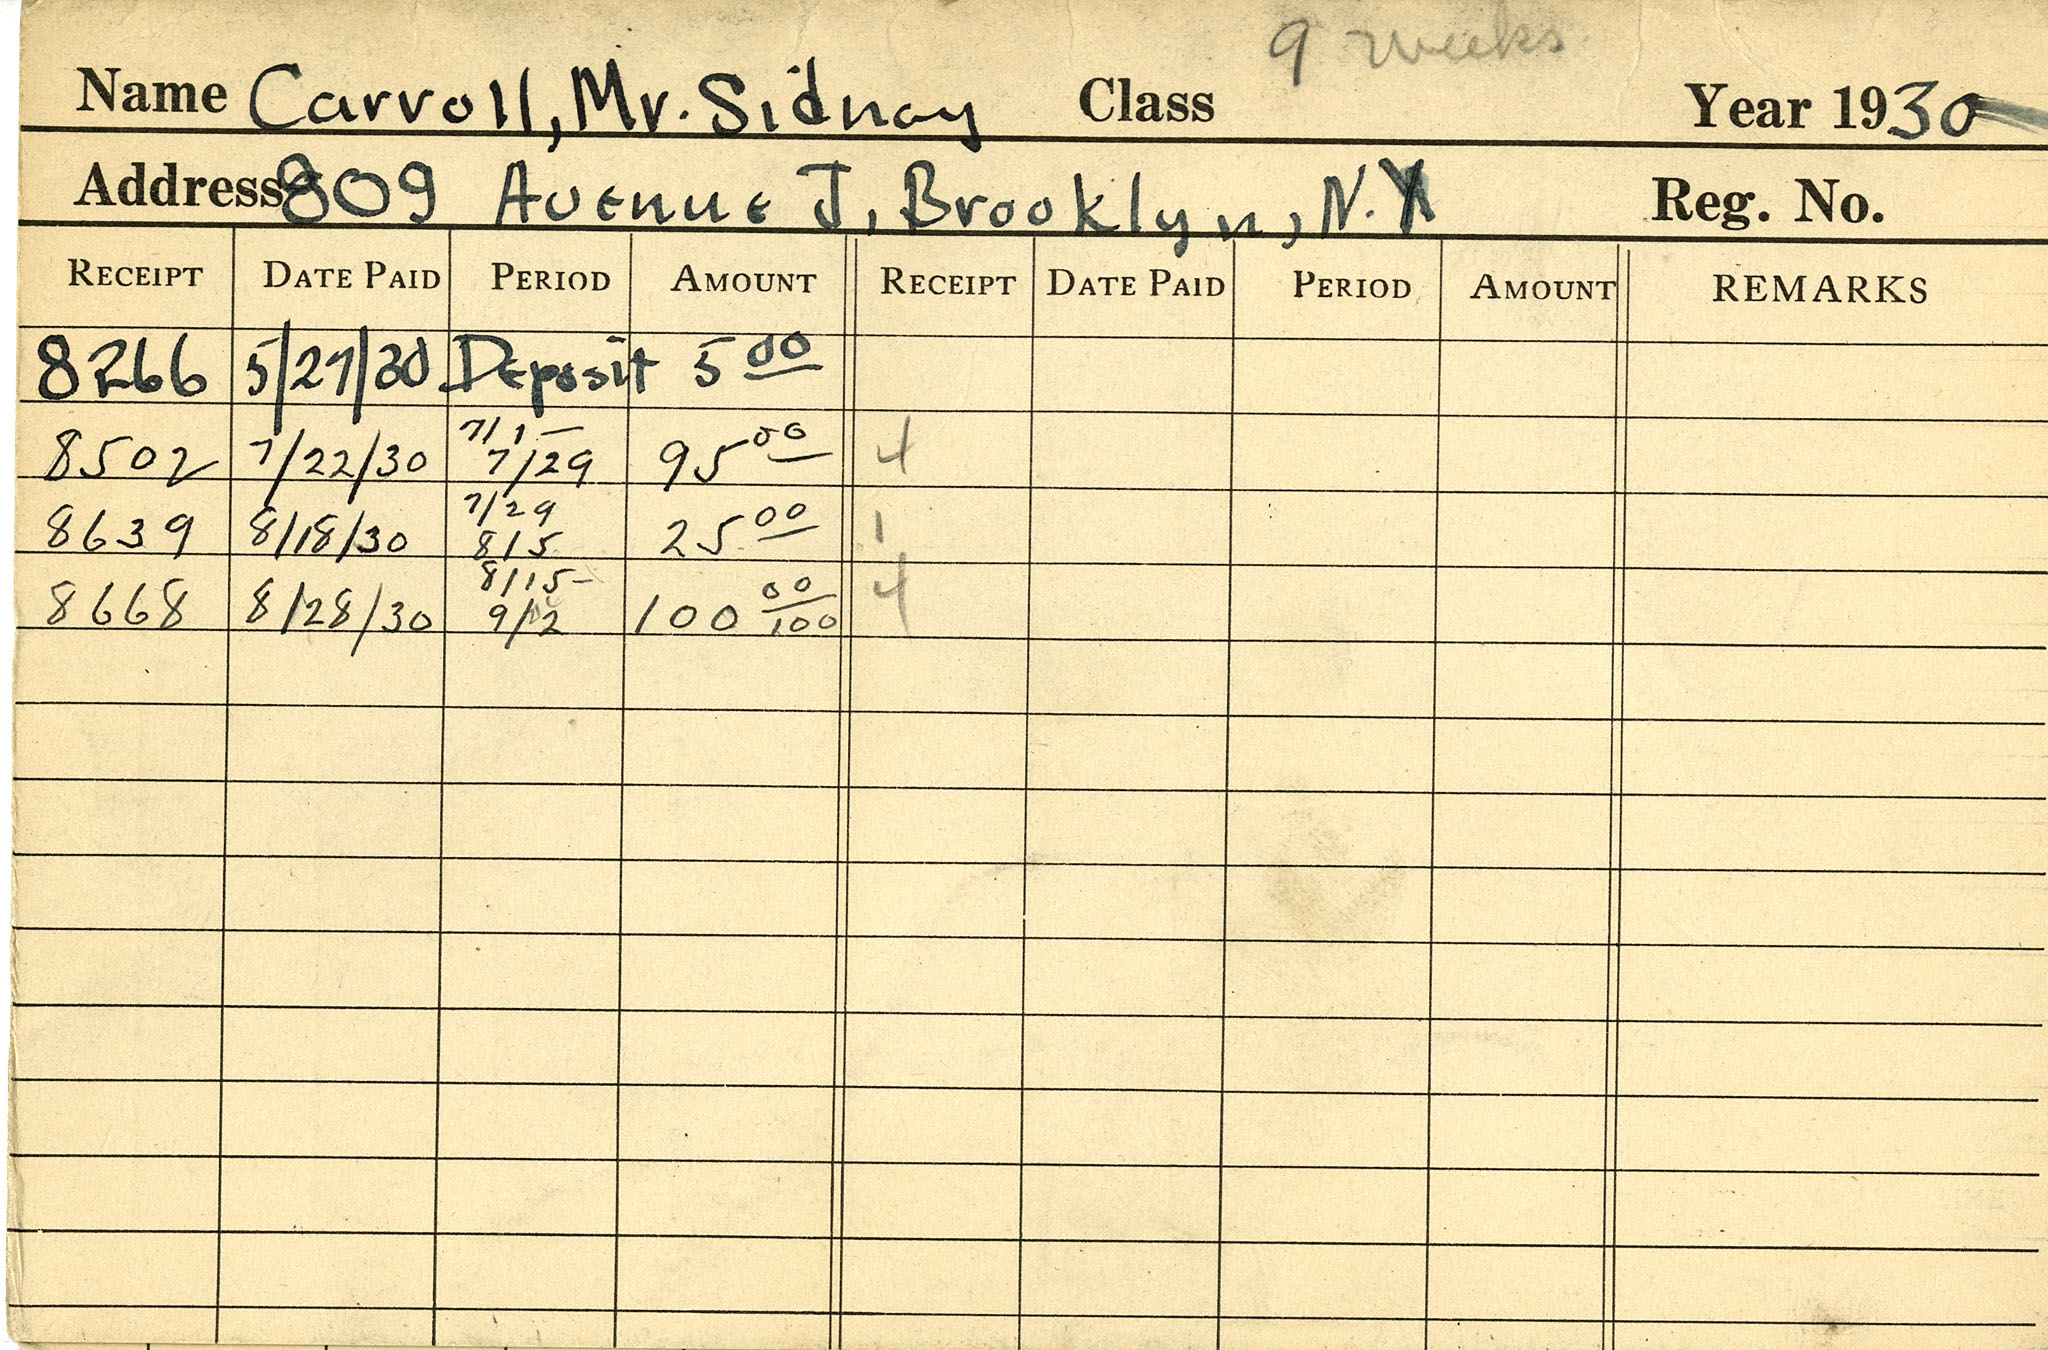 9 weeks
Name Carroll, Mr. Sidney Class Year 1930
Address 809 Avenue J, Brooklyn, N.Y Reg. No.
RECEIPT DATE PAID PERIOD AMOUNT RECEIPT DATE PAID PERIOD AMOUNT REMARKS
8266 5/27/30 Deposit 5 00
7/1 –
8502 7/22/30 7/29 95 00 4
7/29
8639 8/18/30 8/5 25 00 1
8/15–
8668 8/28/30 9/2 100 00/100 4